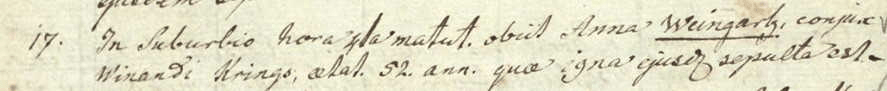 17. In Suburbio hora 4ta matut. obiit Anna Weingartz, conjux
Winandi Krings, ætat. 52. ann. quæ igna ejusd sepulta est.